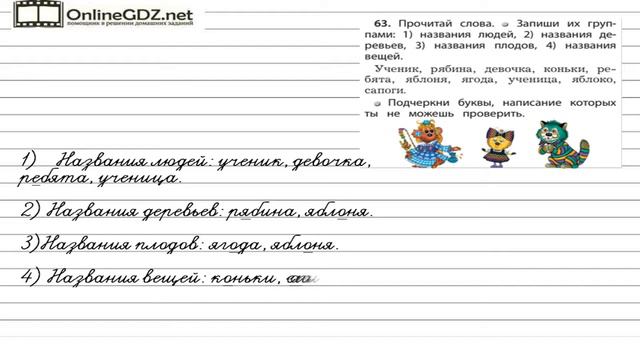 OnlineGDZ.net
помощник в решении домашних заданий
63. Прочитай слова. Запиши их груп-
пами: 1) названия людей, 2) названия де-
ревьев, 3) названия плодов, 4) названия
вещей.
Ученик, рябина, девочка, коньки, ре-
бята, яблоня, ягода, ученица, яблоко,
сапоги.
Подчеркни буквы, написание которых
ты не можешь проверить.
1) Названия людей: ученик, девочка,
ребята, ученица.
2) Названия деревьев: рябина, яблоня.
3) Названия плодов: ягода, яблоня.
4) Названия вещей: коньки,